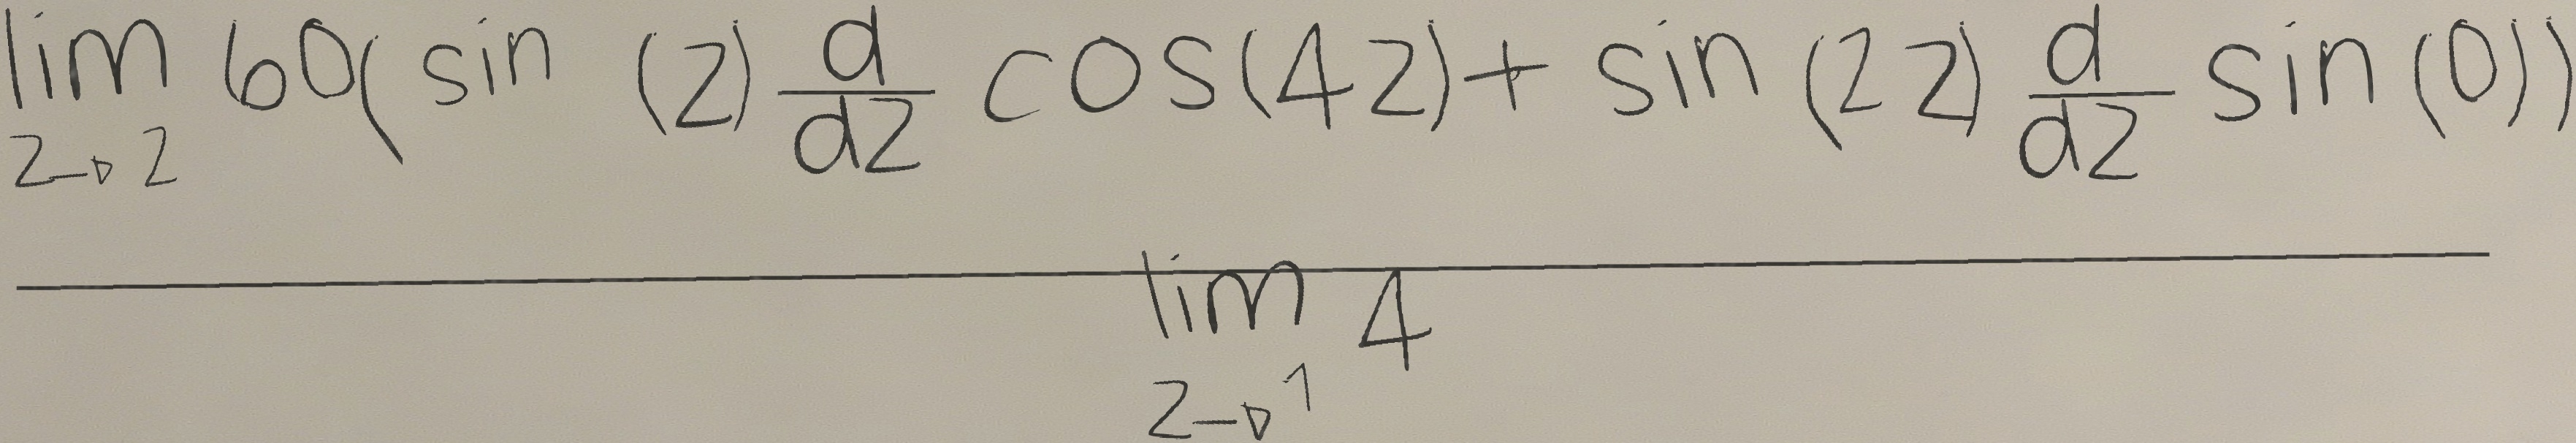 lim 60(sin (z) d/dz cos(4z) + sin (2z) d/dz sin(0))
z→2
lim 4
z→1